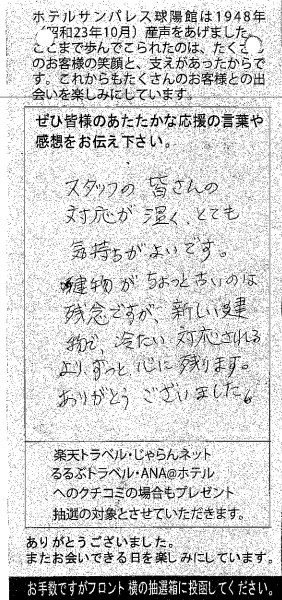 ホテルサンパレス球陽館は1948年
(昭和23年10月)産声をあげました。
ここまで歩んでこられたのは、たくさん
のお客様の笑顔と、支えがあったからで
す。これからもたくさんのお客様との出
会いを楽しみにしています。
ぜひ皆様のあたたかな応援の言葉や
感想をお伝え下さい。
スタッフの皆さんの
対応が温く、とても
気持ちがよいです。
建物がちょっと古いのは
残念ですが、新しい建
物で、冷たい対応される
より、ずっと心に残ります。
ありがとうございました。
楽天トラベル・じゃらんネット
るるぶトラベル・ANA@ホテル
へのクチコミの場合もプレゼント
抽選の対象とさせていただきます。
ありがとうございました。
またお会いできる日を楽しみにしています。
お手数ですがフロント横の抽選箱に投函してください。